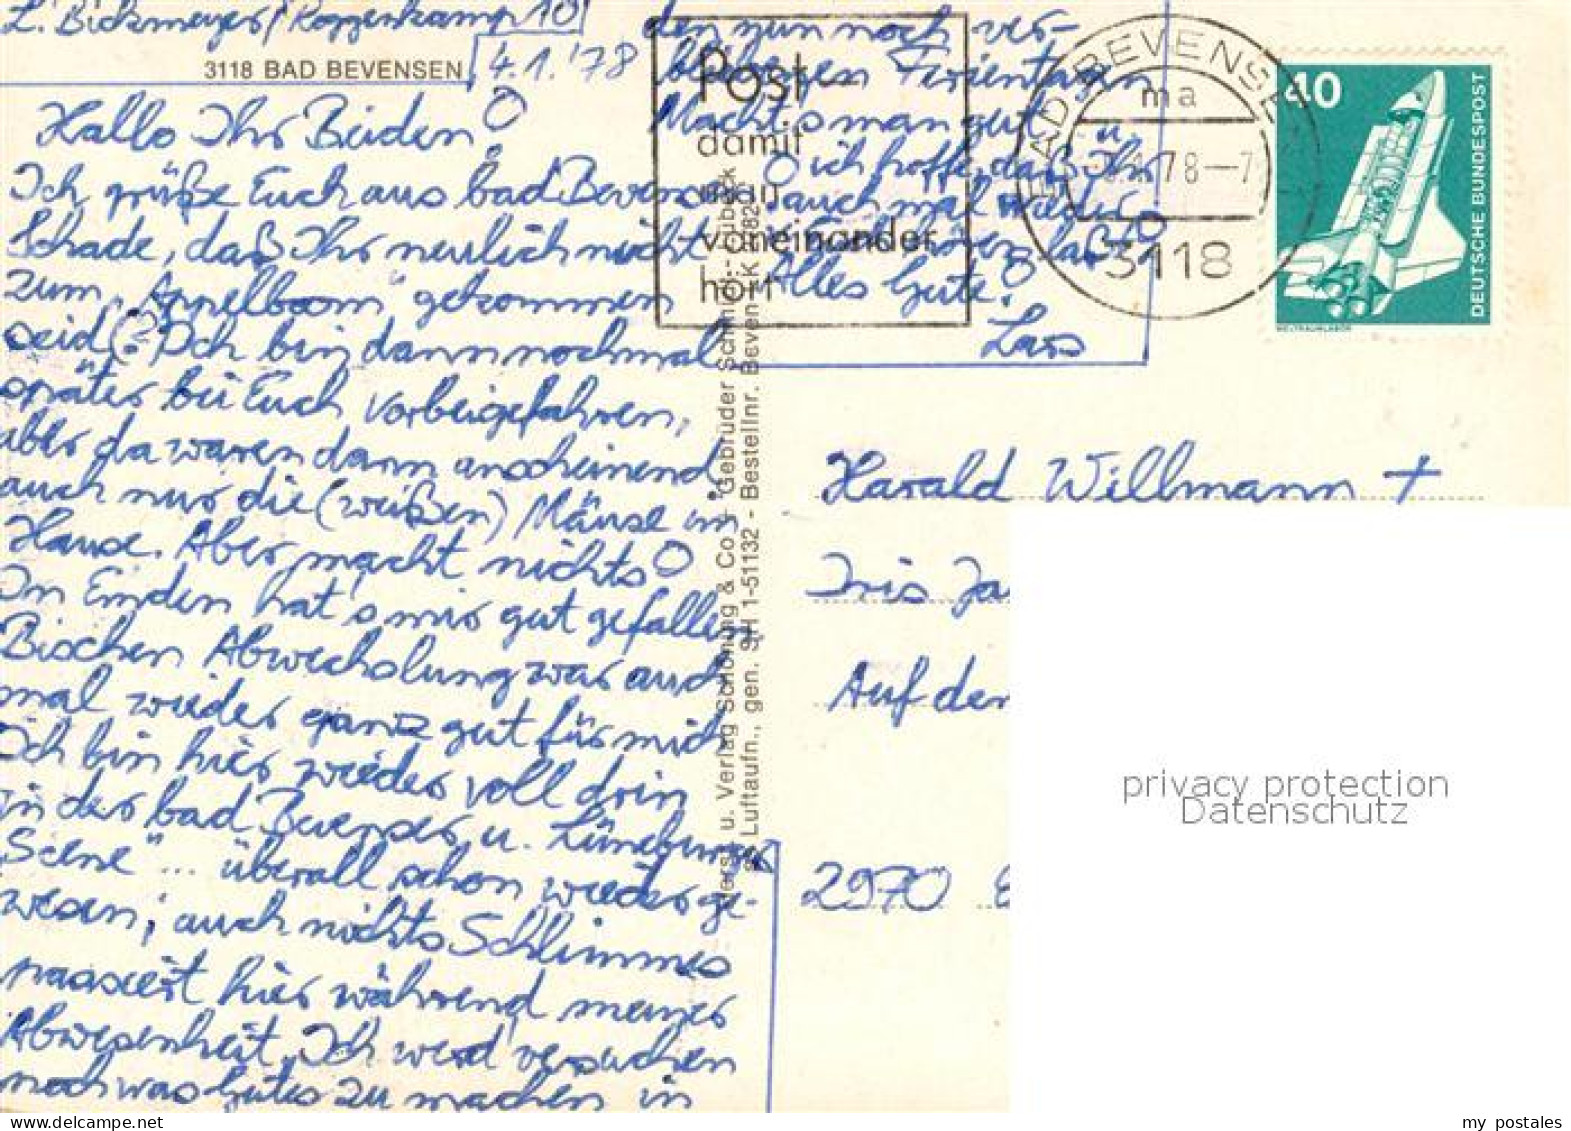 L. Bickmeyer / Roggenkamp 10
3118 BAD BEVENSEN
4.1.'78
Hallo Ihr Beiden!
Ich grüße Euch aus bad Bevensen.
Schade, daß Ihr neulich nicht
zum „Appelboom" gekommen
seid (?) Ich bin dann nochmal
später bei Euch vorbeigefahren,
aber da waren dann anscheinend
auch nur die (weißen) Mäuse im
Hause. Aber macht nichts!
In Emden hat's mir gut gefallen.
Bischen Abwechslung war auch
mal wieder ganz gut für mich.
Ich bin hier wieder voll drin
in der bad Bevenser u. Lüneburger
„Scene" ... überall schon wieder ge-
wesen; auch nichts Schlimmes
passiert hier während meiner
Abwesenheit. Ich werd versuchen
noch was Gutes zu machen in
den nun noch ver-
bliebenen Ferientagen
Macht's man gut u.
ich hoffe, daß Ihr
auch mal wieder
laßt!
Alles Gute!
Lars
Post-
damit
man
voneinander
hört
BAD BEVENSEN
ma
78-7
3118
40
DEUTSCHE BUNDESPOST
WELTRAUMLABOR
Hers. u. Verlag Schöning & Co + Gebrüder Schmidt, Lübeck
SS Luftaufn., gen. SH 1-51132 - Bestellnr. Beven K 82
Harald Willmann +
Iris Ja
Auf der
2970 E
privacy protection
Datenschutz
my_postales